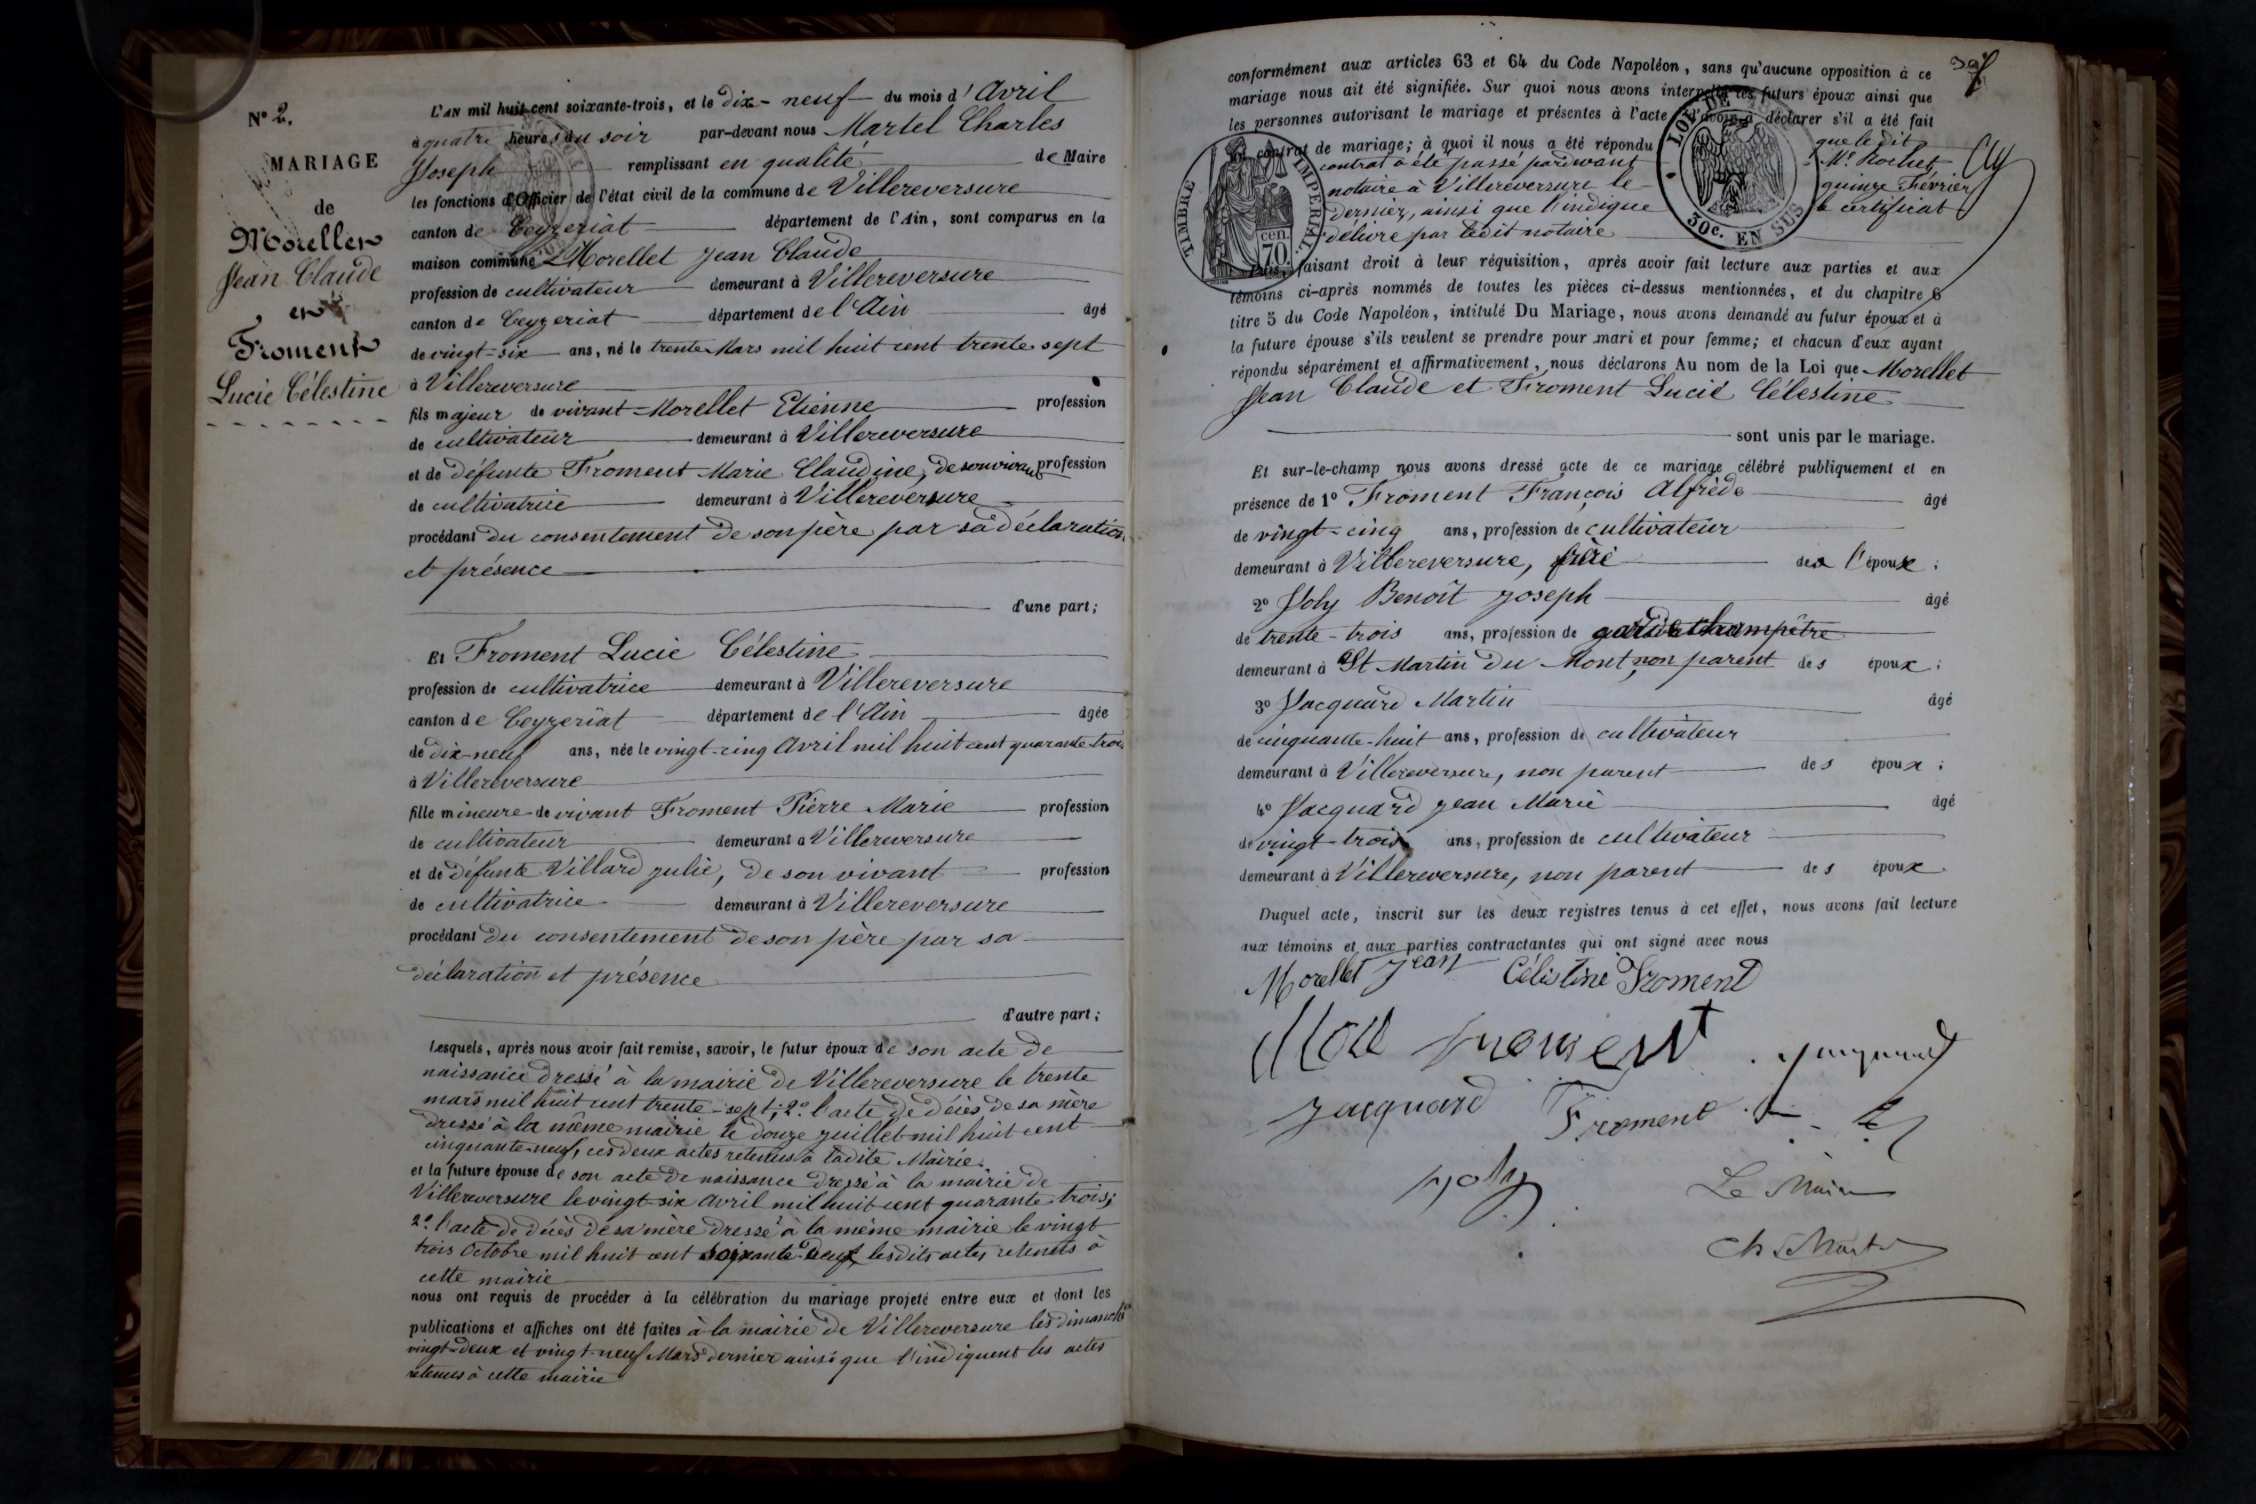 N° 2.
MARIAGE
de
Morellet
Jean Claude
et
Froment
Lucie Célestine
L'AN mil huit cent soixante-trois, et le dix-neuf du mois d'Avril
à quatre heures du soir par-devant nous Martel Charles
Joseph remplissant en qualité de Maire
les fonctions d'Officier de l'état civil de la commune de Villereversure
canton de Ceyzeriat département de l'Ain, sont comparus en la
maison commune Morellet Jean Claude
profession de cultivateur demeurant à Villereversure
canton de Ceyzeriat département de l'Ain âgé
de vingt-six ans, né le trente Mars mil huit cent trente sept
à Villereversure
fils majeur de vivant Morellet Etienne profession
de cultivateur demeurant à Villereversure
et de défunte Froment Marie Claudine, de son vivant profession
de cultivatrice demeurant à Villereversure
procédant du consentement de son père par sa déclaration
et présence
d'une part;
Et Froment Lucie Célestine
profession de cultivatrice demeurant à Villereversure
canton de Ceyzeriat département de l'Ain âgée
de dix-neuf ans, née le vingt-cinq Avril mil huit cent quarante trois
à Villereversure
fille mineure de vivant Froment Pierre Marie profession
de cultivateur demeurant à Villereversure
et de défunte Villard Julie, de son vivant profession
de cultivatrice demeurant à Villereversure
procédant du consentement de son père par sa
déclaration et présence
d'autre part;
Lesquels, après nous avoir fait remise, savoir, le futur époux de son acte de
naissance dressé à la mairie de Villereversure le trente
mars mil huit cent trente-sept; 2° l'acte de décès de sa mère
dressé à la même mairie le douze juillet mil huit cent
cinquante-neuf, ces deux actes retenus à ladite Mairie.
et la future épouse de son acte de naissance dressé à la mairie de
Villereversure le vingt-six Avril mil huit cent quarante trois;
2° l'acte de décès de sa mère dressé à la même mairie le vingt
trois Octobre mil huit cent soixante lesdits actes retenus à
cette mairie
nous ont requis de procéder à la célébration du mariage projeté entre eux et dont les
publications et affiches ont été faites à la mairie de Villereversure les dimanches
vingt-deux et vingt-neuf Mars dernier ainsi que l'indiquent les actes
retenus à cette mairie
conformément aux articles 63 et 64 du Code Napoléon, sans qu'aucune opposition à ce
mariage nous ait été signifiée. Sur quoi nous avons interpellé les futurs époux ainsi que
les personnes autorisant le mariage et présentes à l'acte d'avoir à déclarer s'il a été fait
un contrat de mariage; à quoi il nous a été répondu que le dit
contrat a été passé pardevant Me Rochet
notaire à Villereversure le quinze Février
dernier, ainsi que l'indique le certificat
délivré par ledit notaire
TIMBRE IMPERIAL
70 cen.
LOI DE
30c. EN SUS
Puis, faisant droit à leur réquisition, après avoir fait lecture aux parties et aux
témoins ci-après nommés de toutes les pièces ci-dessus mentionnées, et du chapitre 6
titre 5 du Code Napoléon, intitulé Du Mariage, nous avons demandé au futur époux et à
la future épouse s'ils veulent se prendre pour mari et pour femme; et chacun d'eux ayant
répondu séparément et affirmativement, nous déclarons Au nom de la Loi que Morellet
Jean Claude et Froment Lucie Célestine
sont unis par le mariage.
Et sur-le-champ nous avons dressé acte de ce mariage célébré publiquement et en
présence de 1° Froment François Alfrède âgé
de vingt-cinq ans, profession de cultivateur
demeurant à Villereversure, frère de l'épouse;
2° Joly Benoît Joseph âgé
de trente-trois ans, profession de garde champêtre
demeurant à St Martin du Mont, non parent des époux;
3° Jacquard Martin âgé
de cinquante-huit ans, profession de cultivateur
demeurant à Villereversure, non parent des époux;
4° Jacquard Jean Marie âgé
de vingt-trois ans, profession de cultivateur
demeurant à Villereversure, non parent des époux.
Duquel acte, inscrit sur les deux registres tenus à cet effet, nous avons fait lecture
aux témoins et aux parties contractantes qui ont signé avec nous
Morellet Jean Célestine Froment
froment Jacquard
Jacquard Froment
Joly
Le Maire
Ch Martel